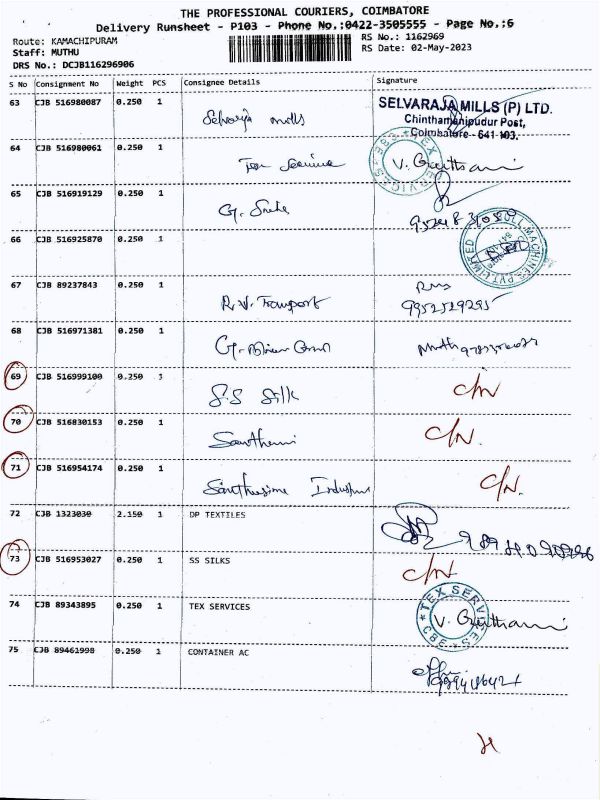 THE PROFESSIONAL COURIERS, COIMBATORE
Delivery Runsheet - P103 - Phone No.:0422-3505555 - Page No.:6
Route: KAMACHIPURAM RS No.: 1162969
Staff: MUTHU RS Date: 02-May-2023
DRS No.: DCJB116296906
S No Consignment No Weight PCS Consignee Details Signature
63 CJB 516980087 0.250 1 Selvaraja mills SELVARAJA MILLS (P) LTD.
Chinthamanipudur Post,
Coimbatore - 641 103.
64 CJB 516980061 0.250 1 V. Gauthami
TEX SERVICES CBE
65 CJB 516919129 0.250 1 G.
66 CJB 516925870 0.250 1
MACHINES PVT. LIMITED
67 CJB 89237843 0.250 1 R.V. Transport
9952529295
68 CJB 516971381 0.250 1 G.
69 CJB 516999100 0.250 1 S.S Silk C/N
70 CJB 516830153 0.250 1 C/N.
71 CJB 516954174 0.250 1 C/N.
72 CJB 1323030 2.150 1 DP TEXTILES
73 CJB 516953027 0.250 1 SS SILKS C/N
74 CJB 89343895 0.250 1 TEX SERVICES V. Gauthami
TEX SERVICES CBE
75 CJB 89461998 0.250 1 CONTAINER AC